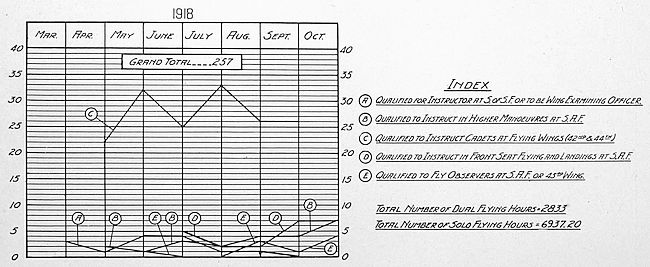 1918
MAR. APR. MAY JUNE JULY AUG. SEPT. OCT.
GRAND TOTAL.....257
40 40
35 35
30 30
25 25
20 20
15 15
10 10
5 5
0 0
C
A B E B D E D B
E
INDEX
A QUALIFIED FOR INSTRUCTOR AT S. OF S.F. OR TO BE WING EXAMINING OFFICER
B QUALIFIED TO INSTRUCT IN HIGHER MANOEUVRES AT S.A.F.
C QUALIFIED TO INSTRUCT CADETS AT FLYING WINGS (42ND & 44TH)
D QUALIFIED TO INSTRUCT IN FRONT SEAT FLYING AND LANDINGS AT S.A.F.
E QUALIFIED TO FLY OBSERVERS AT S.A.F. OR 43TH WING.
TOTAL NUMBER OF DUAL FLYING HOURS = 2833
TOTAL NUMBER OF SOLO FLYING HOURS = 6937.20